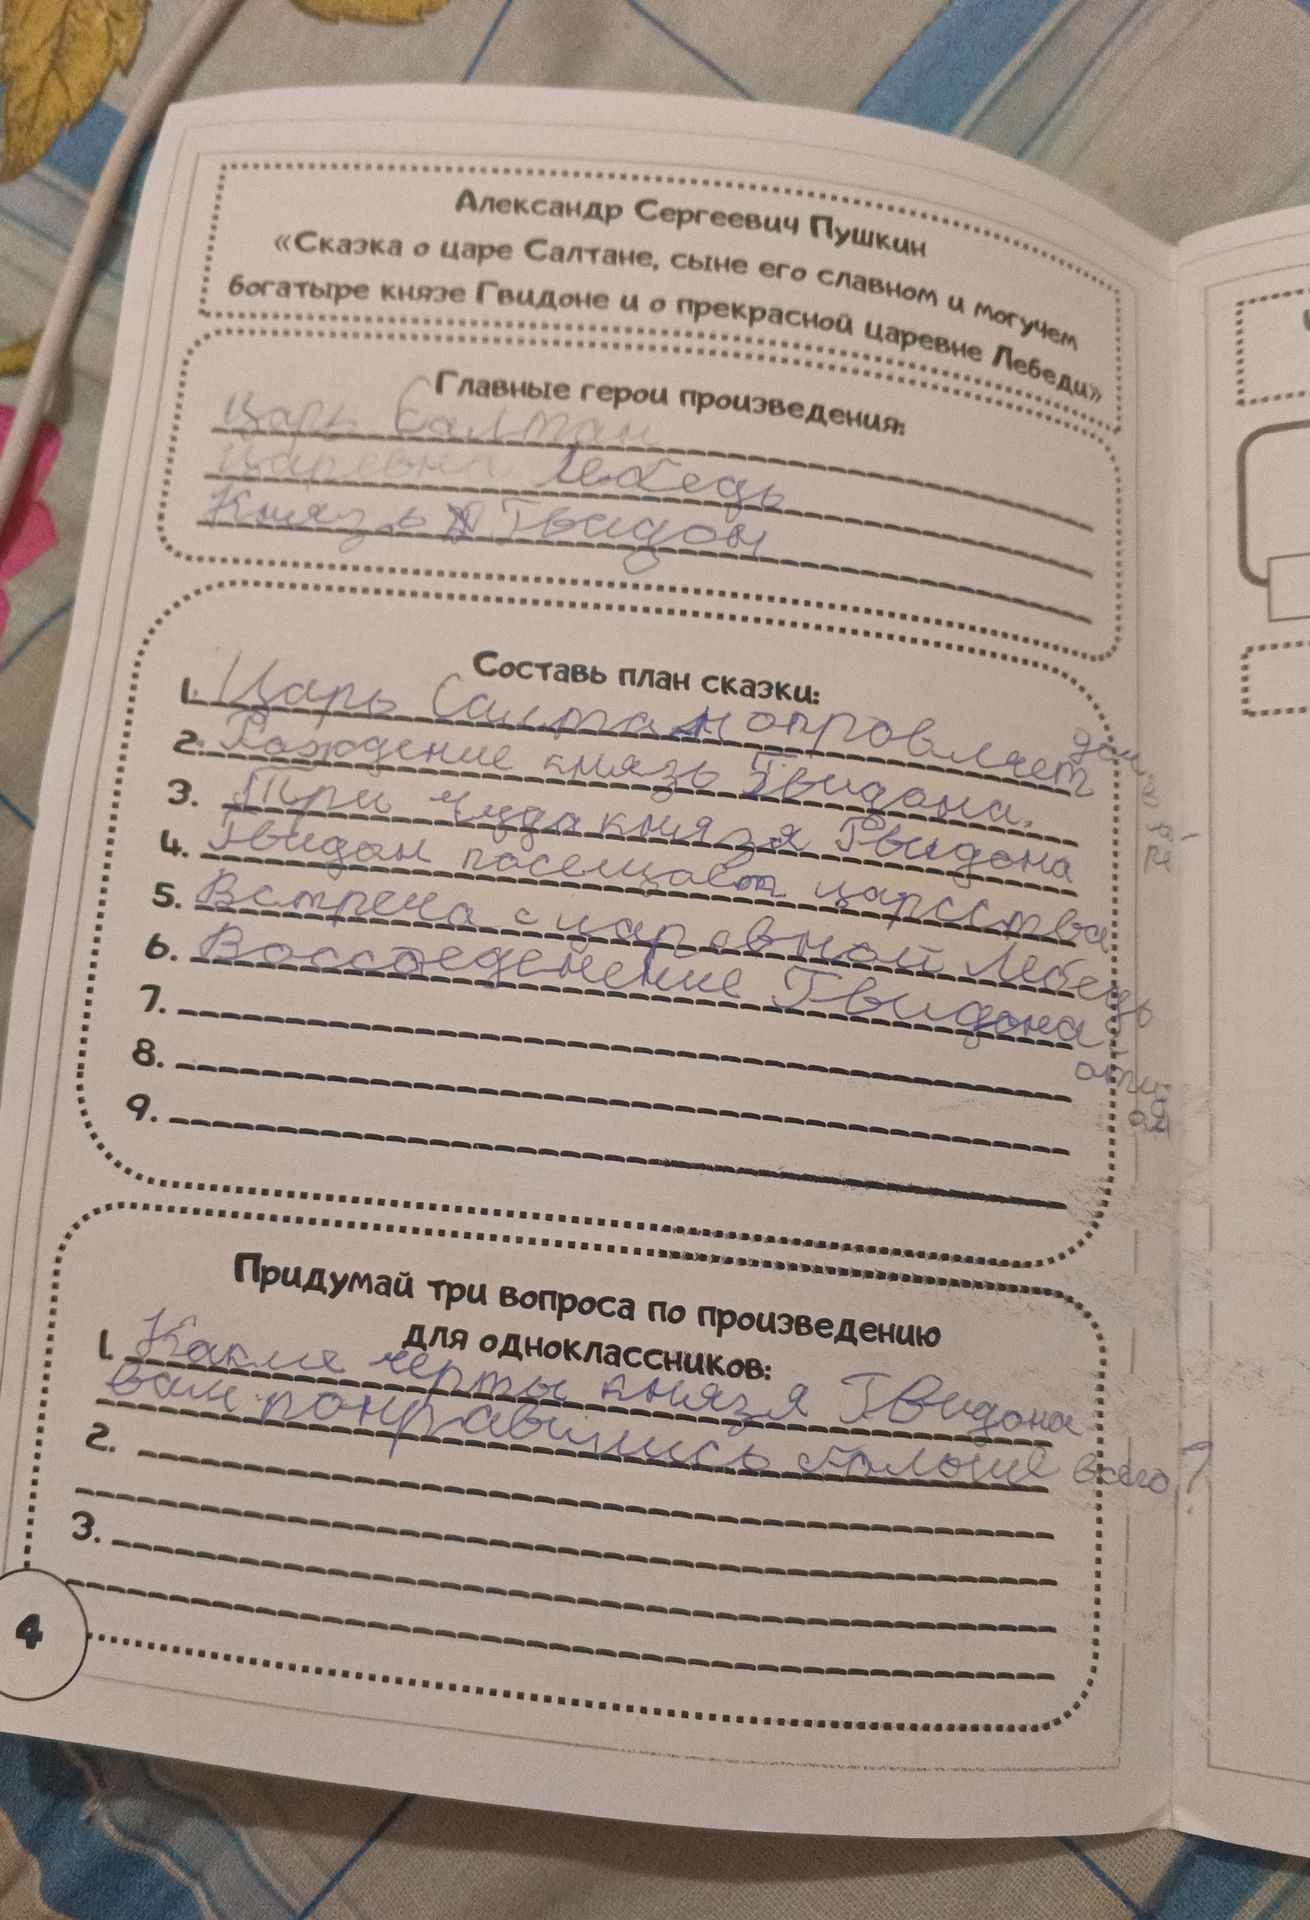 Александр Сергеевич Пушкин
«Сказка о царе Салтане, сыне его славном и могучем
богатыре князе Гвидоне и о прекрасной царевне Лебеди»
Главные герои произведения:
Царь Салтан
Царевна Лебедь
Князь Гвидон
Составь план сказки:
1. Царь Салтан отровляет
2. Рождение князь Гвидона.
3. Три чуда князя Гвидона
4. Гвидон посещает царсства
5. Встреча с царевной Лебедь
6. Воссоеденение Гвидона с
7.
8.
9.
Придумай три вопроса по произведению
для одноклассников:
1. Какие черты князя Гвидона
вам понравились больше всего?
2.
3.
4